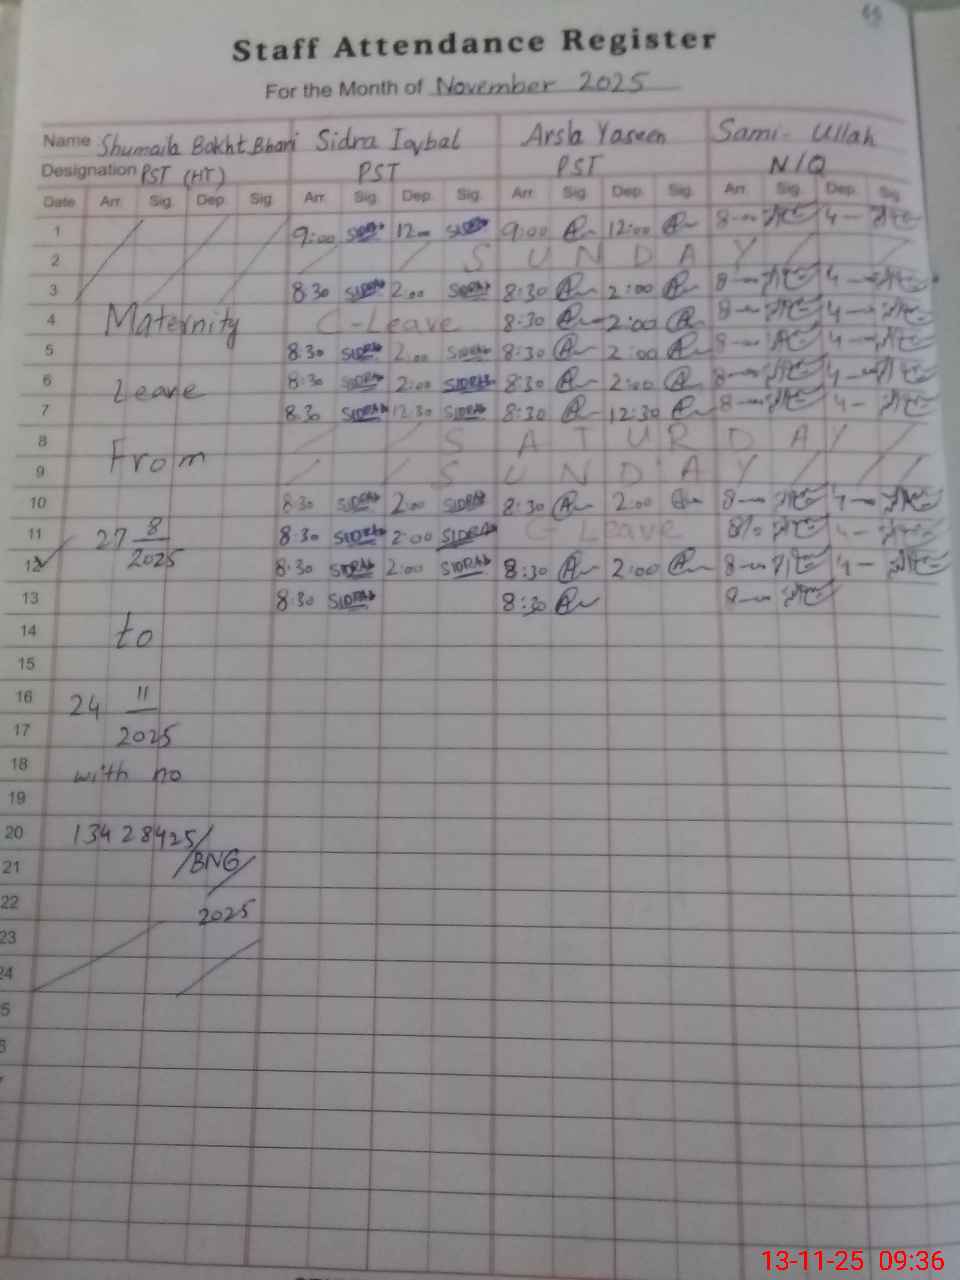 Staff Attendance Register
For the Month of November 2025
Name Shumaila Bakht Bhari Sidra Iqbal Arsla Yaseen Sami-Ullah
Designation PST (HT) PST PST N/Q
Date Arr. Sig. Dep. Sig. Arr. Sig. Dep. Sig. Arr. Sig. Dep. Sig. Arr. Sig. Dep. Sig.
1 9:00 SIDRA 12:00 SIDRA 9:00 12:00 8 4
2 SUNDAY
3 8:30 SIDRA 2:00 SIDRA 8:30 2:00 8 4
4 Maternity C-Leave 8:30 2:00 8 4
5 8:30 SIDRA 2:00 SIDRA 8:30 2:00 8 4
6 Leave 8:30 SIDRA 2:00 SIDRA 8:30 2:00 8 4
7 8:30 SIDRA 12:30 SIDRA 8:30 12:30 8 4
8 SATURDAY
9 From SUNDAY
10 8:30 SIDRA 2:00 SIDRA 8:30 2:00 8 4
11 27 8 8:30 SIDRA 2:00 SIDRA C Leave 4
12 2025 8:30 SIDRA 2:00 SIDRA 8:30 2:00 8 4
13 8:30 SIDRA 8:30 8
14 to
15
16 24 11
17 2025
18 with no
19
20 13428425/
21 /BNG/
22 2025
23
24
13-11-25 09:36